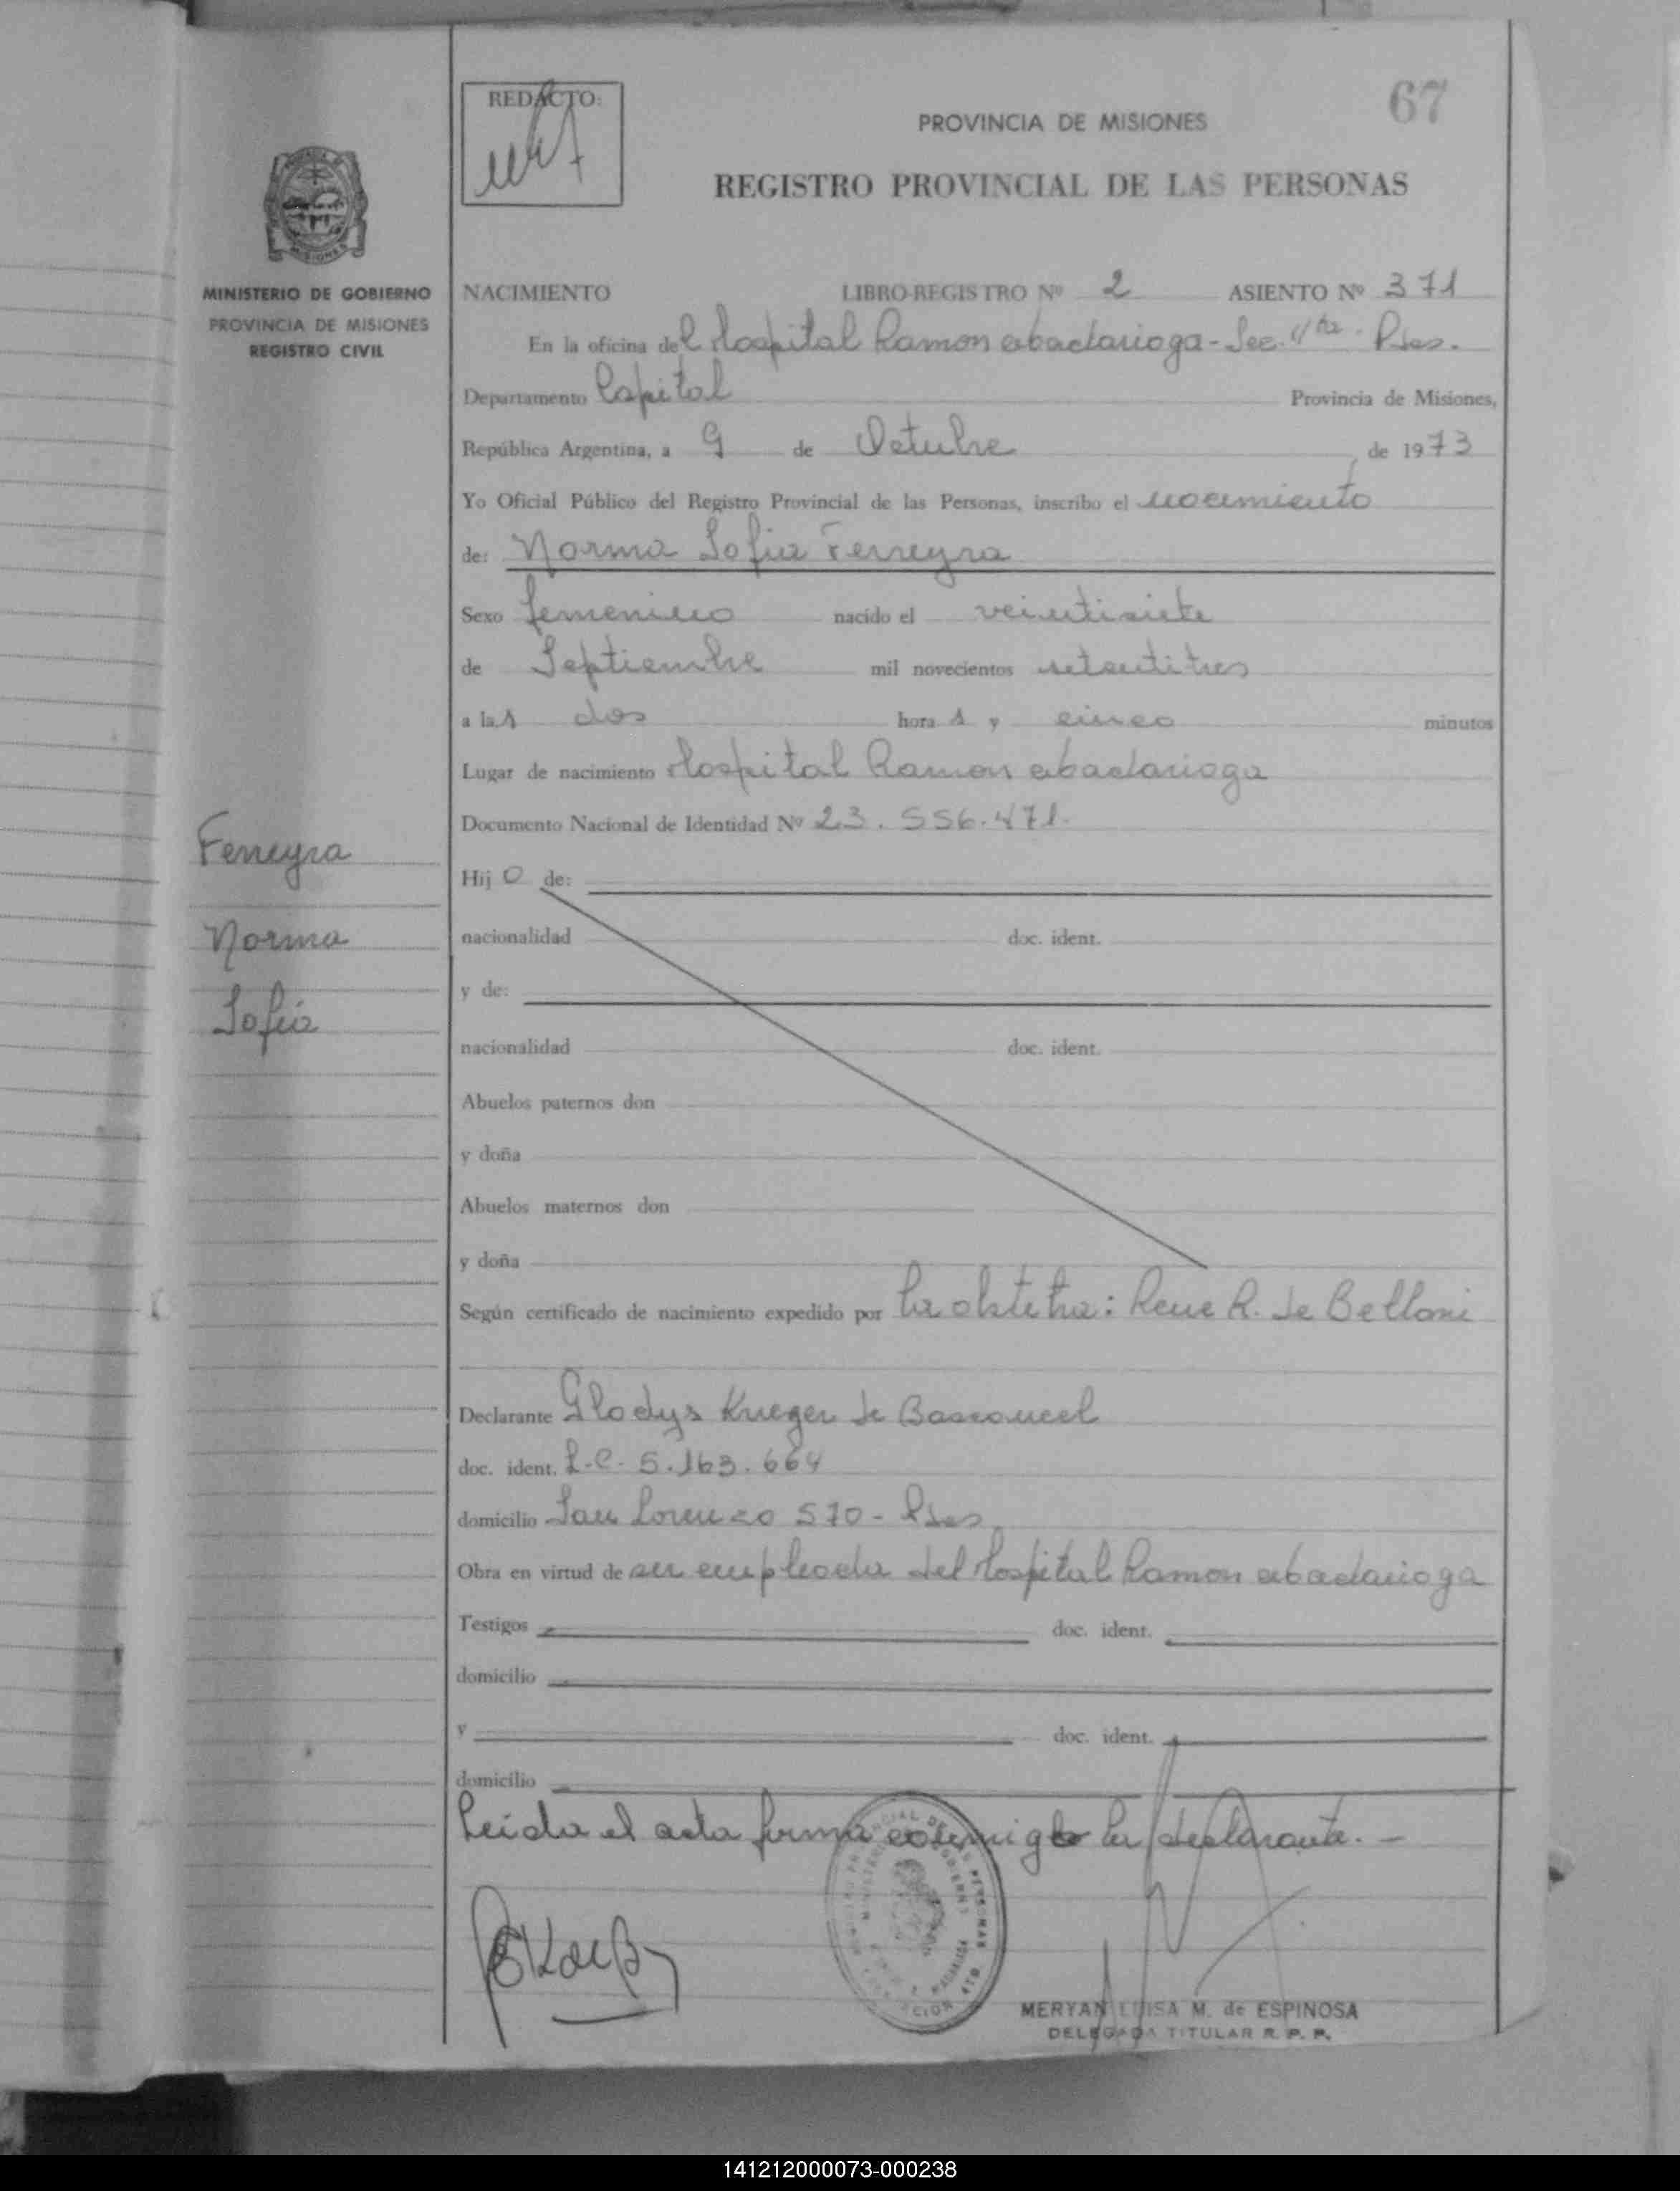 67
REDACTO:
PROVINCIA DE MISIONES
REGISTRO PROVINCIAL DE LAS PERSONAS
MINISTERIO DE GOBIERNO
PROVINCIA DE MISIONES
REGISTRO CIVIL
NACIMIENTO LIBRO-REGISTRO Nº 2 ASIENTO Nº 371
En la oficina del Hospital Ramon abadarioga - Sec. 4ta. Pdas.
Departamento Capital Provincia de Misiones,
República Argentina, a 9 de Octubre de 1973
Yo Oficial Público del Registro Provincial de las Personas, inscribo el nacimiento
de: Norma Sofia Ferreyra
Sexo femenino nacido el veintisiete
de Septiembre mil novecientos setentitres
a las dos horas y cinco minutos
Lugar de nacimiento Hospital Ramon abadarioga
Documento Nacional de Identidad Nº 23.556.471.
Ferreyra
Norma
Sofia
Hij o de:
nacionalidad doc. ident.
y de:
nacionalidad doc. ident.
Abuelos paternos don
y doña
Abuelos maternos don
y doña
Según certificado de nacimiento expedido por La obstetra: Rene R. de Belloni
Declarante Gladys Krueger de
doc. ident. L.C. 5.163.664
domicilio San Lorenzo 570 - Pdas
Obra en virtud de ser empleada del Hospital Ramon abadarioga
Testigos doc. ident.
domicilio
y doc. ident.
domicilio
Leida el acta firma conmigo la declarante. -
MERYAN LUISA M. de ESPINOSA
DELEGADA TITULAR R. P. P.
141212000073-000238